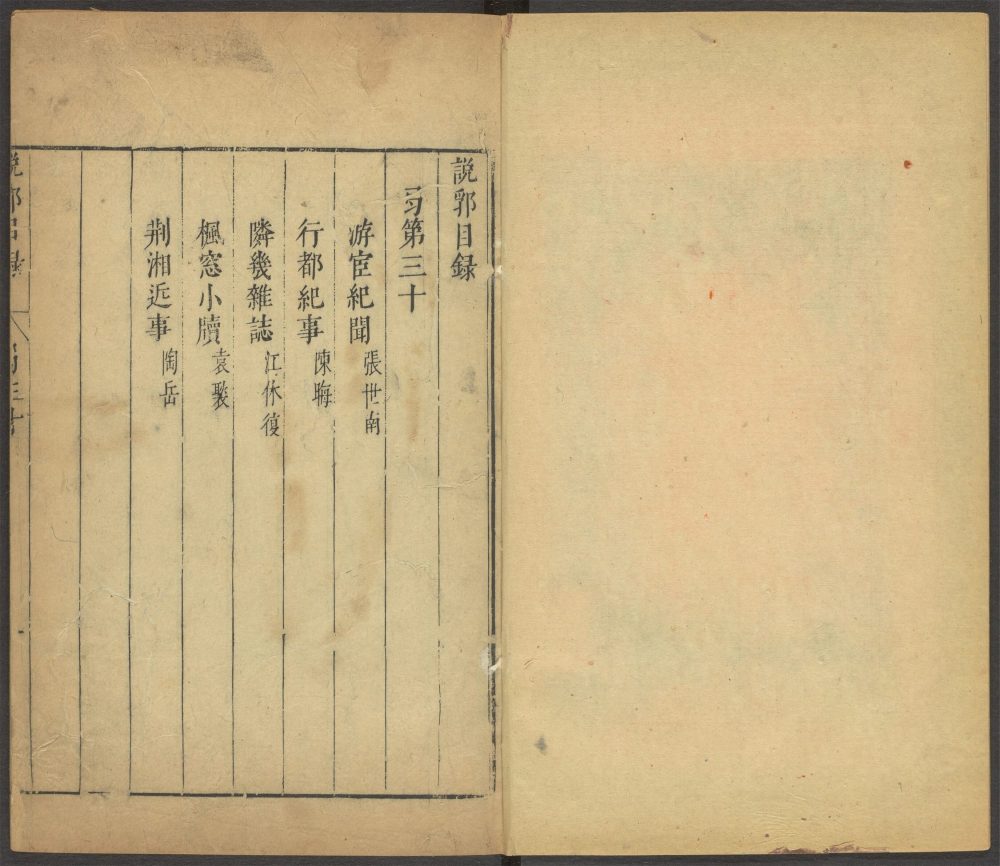 説郛目録
弓第三十
游宦紀聞 張世南
行都紀事 陳晦
隣幾雜誌 江休復
楓窓小牘 袁褧
荆湘近事 陶岳
説郛目録